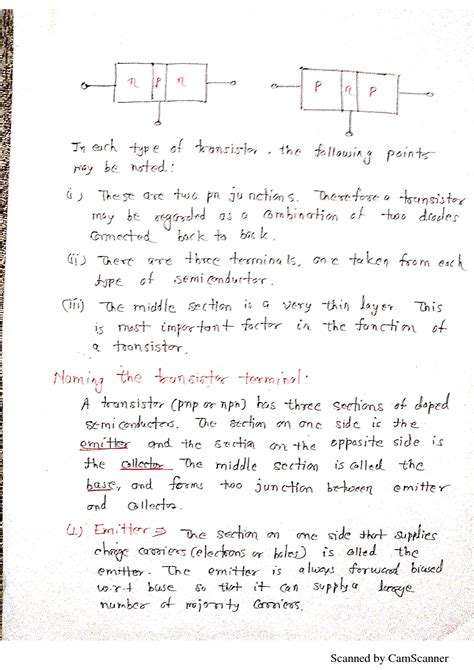 n p n
p n p
In each type of transistor, the following points
may be noted:
(i) These are two pn junctions. Therefore a transistor
may be regarded as a combination of two diodes
connected back to back.
(ii) There are three terminals, one taken from each
type of semiconductor.
(iii) The middle section is a very thin layer This
is most important factor in the function of
a transistor.
Naming the transistor terminal:
A transistor (pnp or npn) has three sections of doped
semiconductors. The section on one side is the
emitter and the section on the opposite side is
the collector The middle section is called the
base, and forms two junction between emitter
and collector.
(1) Emitter ⇒ The section on one side that supplies
charge carriers (electrons or holes) is called the
emitter. The emitter is always forward biased
w.r.t base so that it can supply a large
number of majority carriers.
Scanned by CamScanner